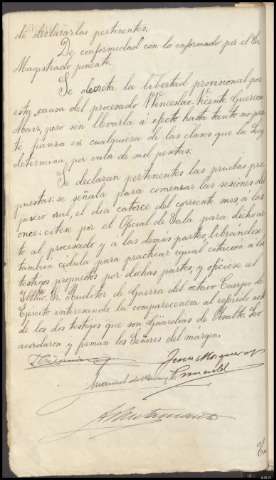 de declararlas pertinentes.
De conformidad con lo informado por el Sr.
Magistrado ponente.
Se decreta la libertad provisional por
esta causa del procesado Wenceslao Vicente Guerra
pero sin llevarla a efecto hasta tanto no pres
te fianza en cualquiera de las clases que la Ley
determina, por valor de mil pesetas.
Se declaran pertinentes las pruebas pro
puestas: se señala para comenzar las sesiones del
juicio oral, el día catorce del corriente mes a las
once: cítese por el Oficial de Sala para dicho ac
to al procesado y a las demás partes, librándose
también cédula para practicar igual citación a los
testigos propuestos por dichas partes, y ofíciese al
Iltmo. Sr. Auditor de Guerra del octavo Cuerpo de
Ejército interesando la comparecencia al referido acto
de los dos testigos que son Guardias de Asalto. Lo
acordaron y firman los Señores del margen.